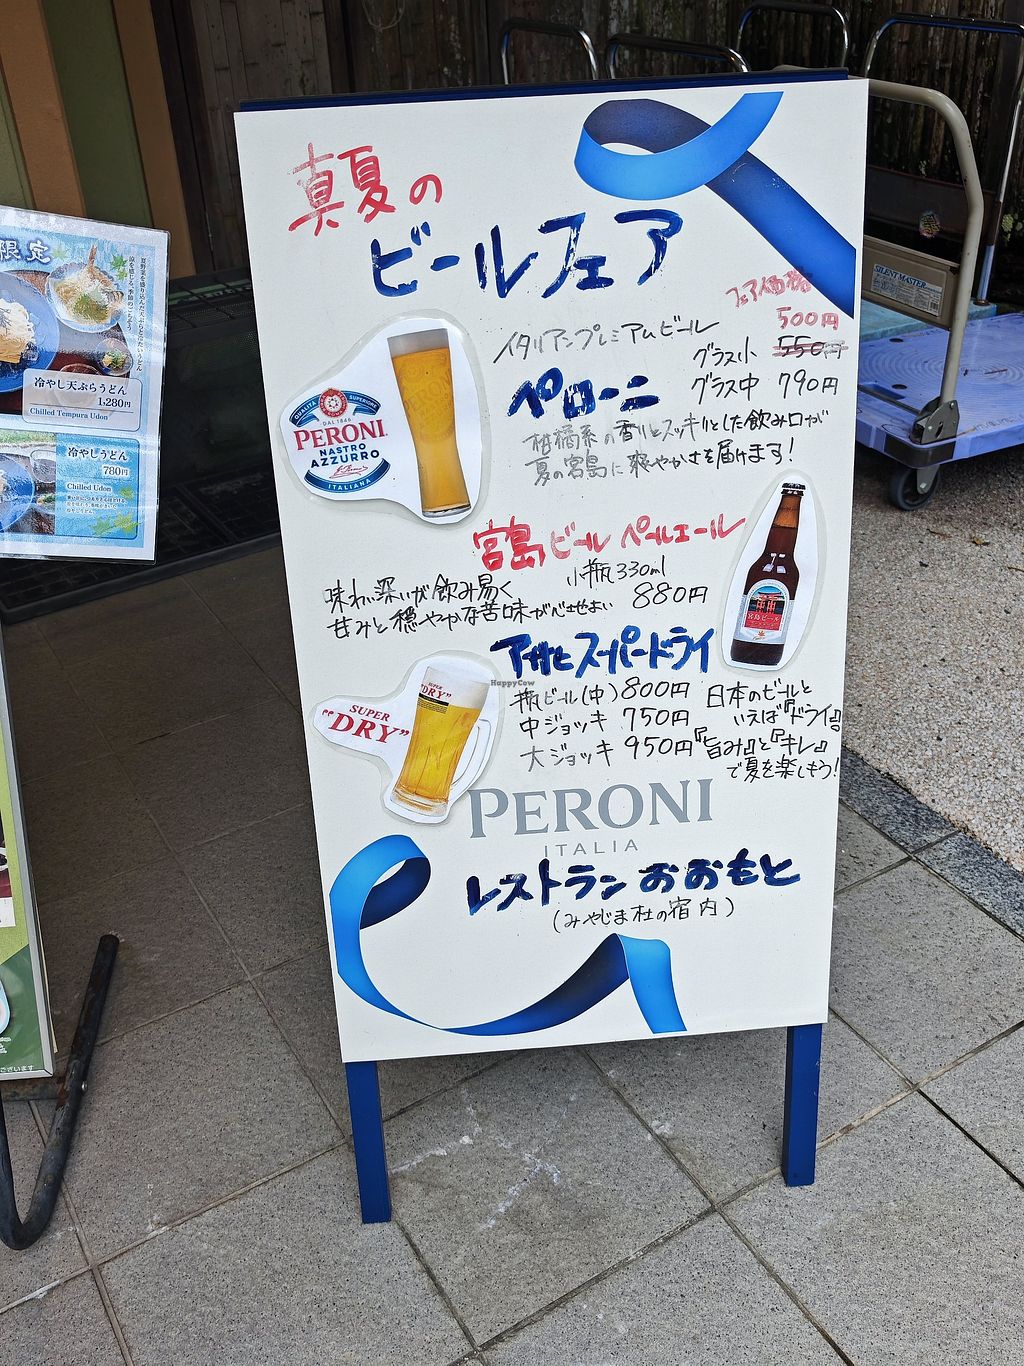 真夏の
ビールフェア
フェア価格
500円
イタリアンプレミアムビール
グラス小 550円
ペローニ
グラス中 790円
柑橘系の香りとスッキリとした飲み口が
夏の宮島に爽やかさを届けます!
QUALITÀ SUPERIORE
DAL 1846
PERONI
NASTRO
AZZURRO
ITALIANA
宮島ビール ペールエール
小瓶330ml
880円
味わい深いが飲み易く
甘みと穏やかな苦味が心地よい
宮島ビール
アサヒスーパードライ
瓶ビール(中) 800円
中ジョッキ 750円
大ジョッキ 950円
日本のビールと
いえば『ドライ』
『旨み』と『キレ』
で夏を楽しもう!
SUPER
"DRY"
SUPER
"DRY"
HappyCow
PERONI
ITALIA
レストラン おおもと
(みやじま杜の宿内)
限定
夏野菜を盛り込んだ天ぷらとうどん
涼を感じる、季節のごちそう
冷やし天ぷらうどん
1,280円
Chilled Tempura Udon
冷やしうどん
780円
Chilled Udon
ございます
SILENT MASTER